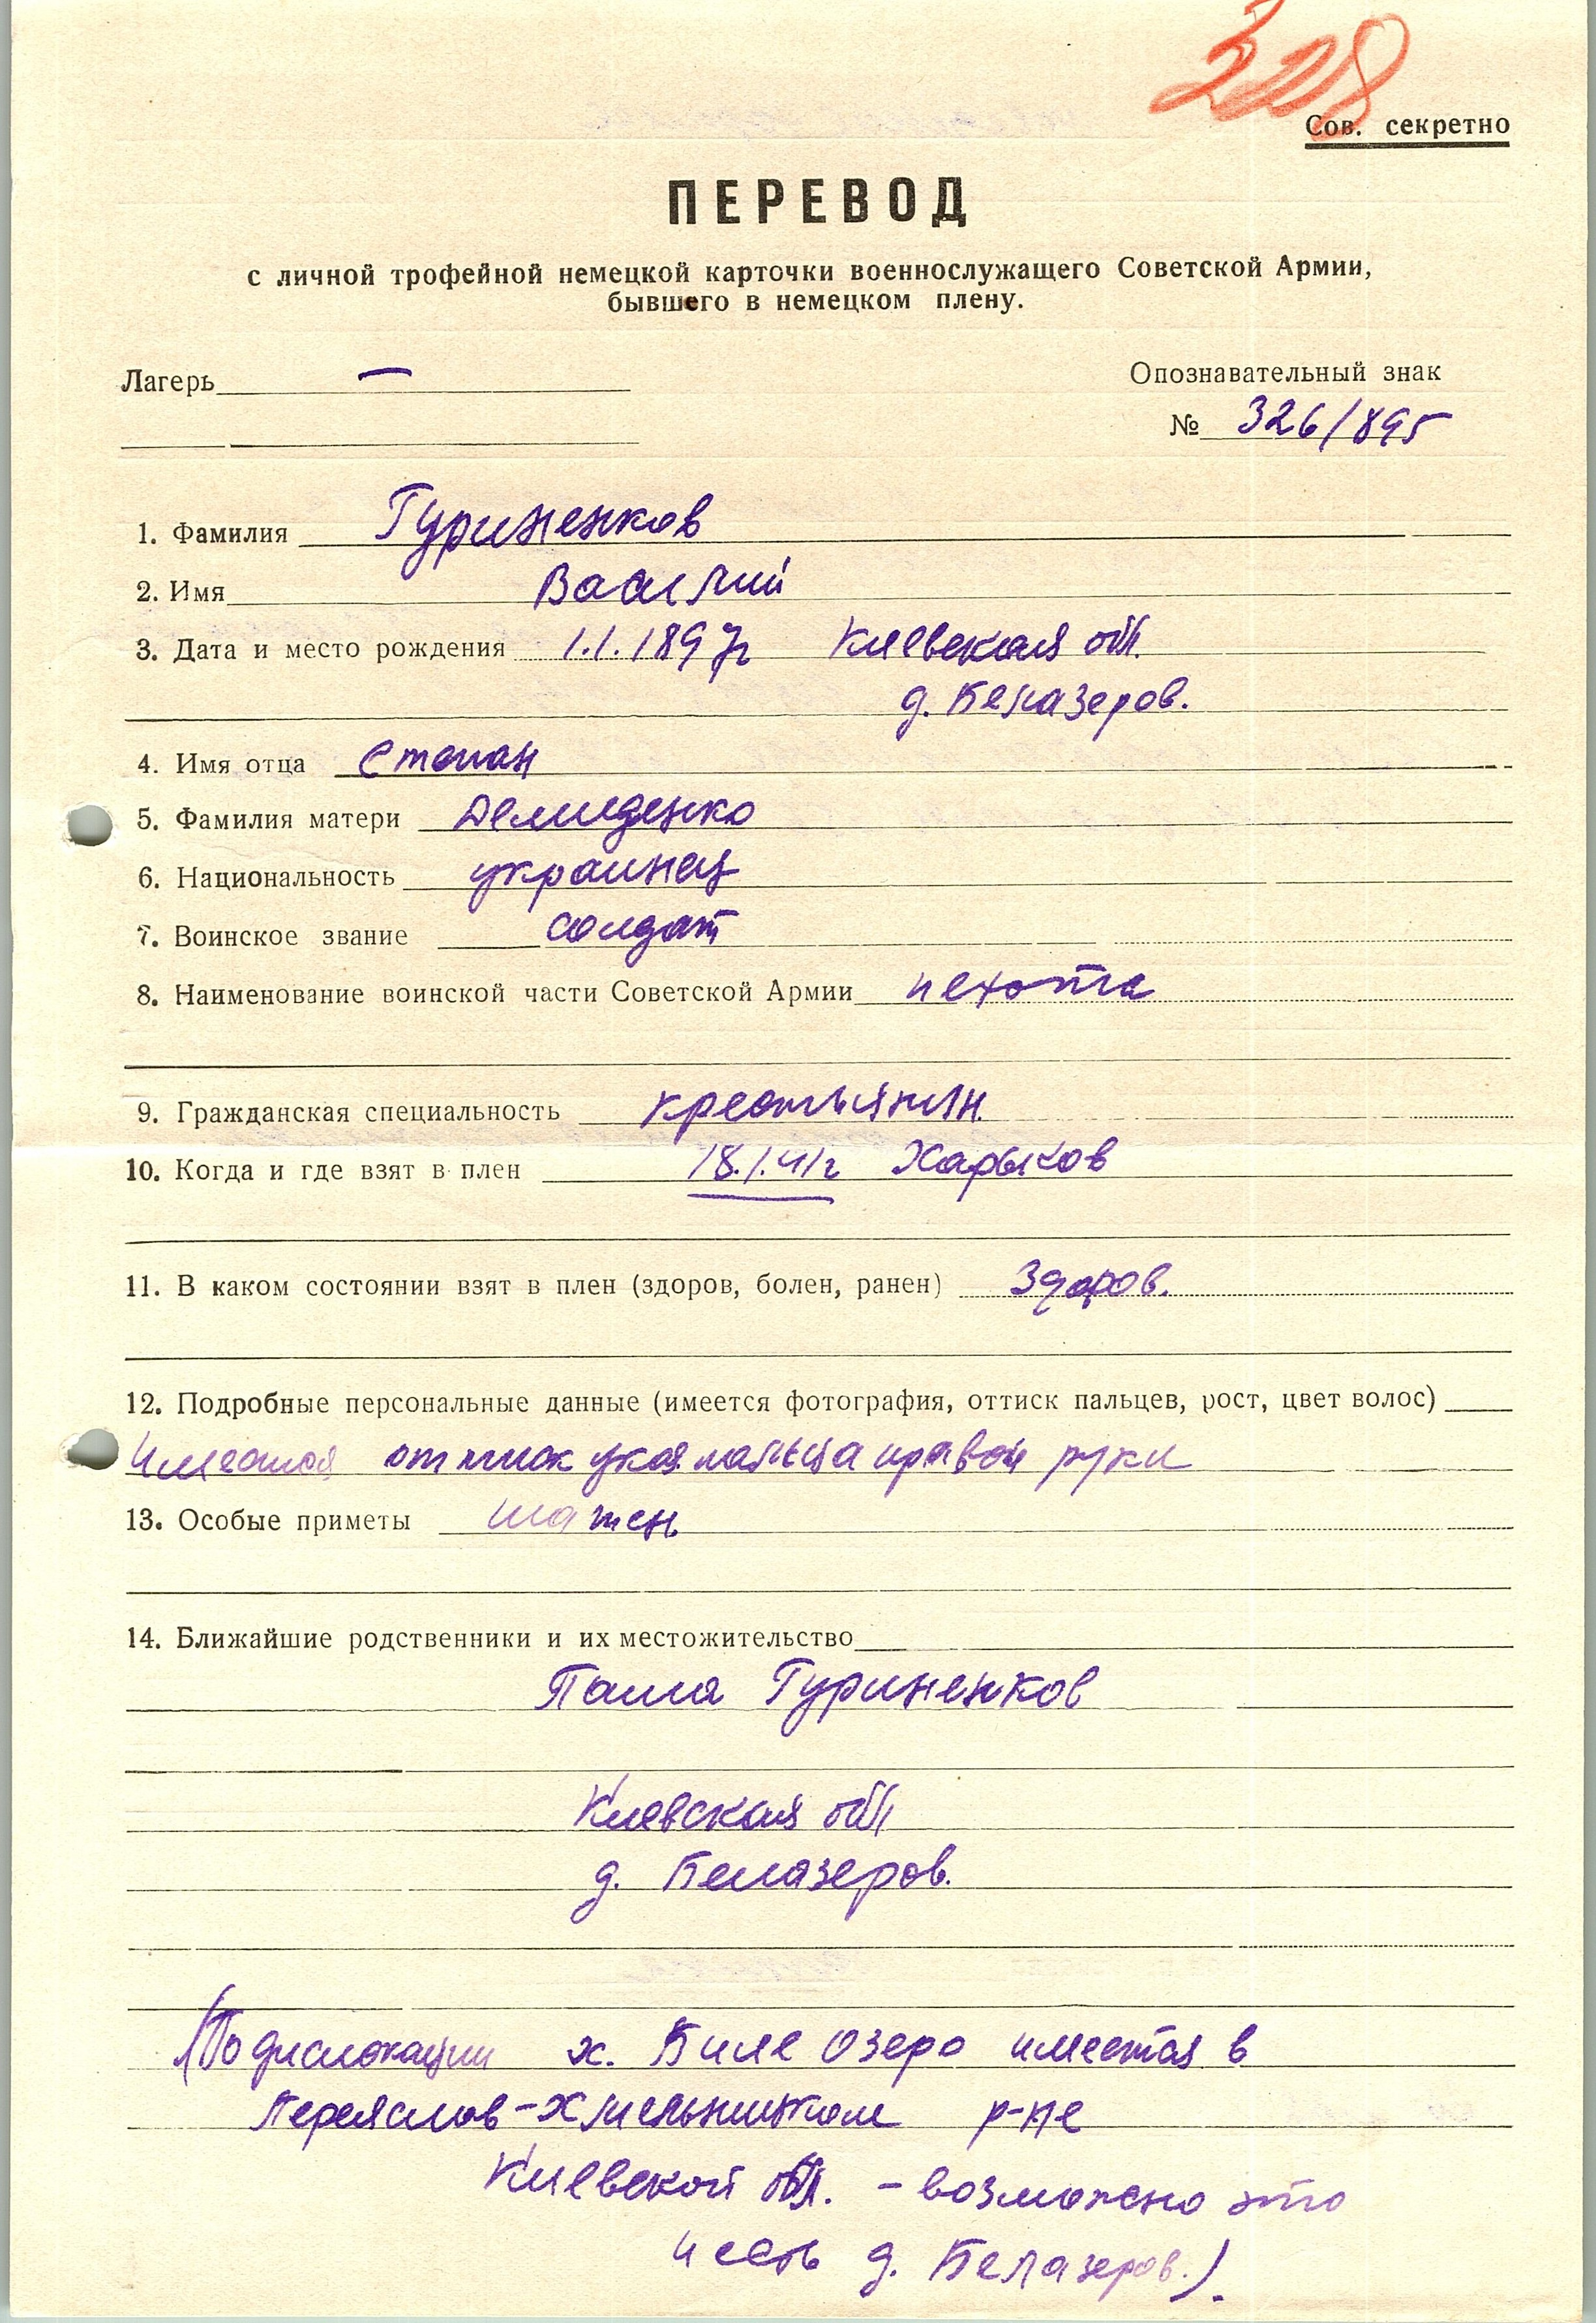 328
Сов. секретно
ПЕРЕВОД
с личной трофейной немецкой карточки военнослужащего Советской Армии,
бывшего в немецком плену.
Лагерь — Опознавательный знак
№ 326/895
1. Фамилия Гуриненков
2. Имя Василий
3. Дата и место рождения 1.1.1897г Киевская обл.
д. Белазеров.
4. Имя отца Степан
5. Фамилия матери Демиденко
6. Национальность украинец
7. Воинское звание солдат
8. Наименование воинской части Советской Армии пехота
9. Гражданская специальность крестьянин.
10. Когда и где взят в плен 18.1.41г Харьков
11. В каком состоянии взят в плен (здоров, болен, ранен) Здоров.
12. Подробные персональные данные (имеется фотография, оттиск пальцев, рост, цвет волос)
имеется оттиск указ. пальца правой руки
13. Особые приметы шатен
14. Ближайшие родственники и их местожительство
Паша Гуриненков
Киевская обл
д. Белазеров.
(По дислокации х. Биле Озеро имеется в
Переяслов-Хмельницком р-не
Киевской обл. - возможно это
и есть д. Белазеров.).